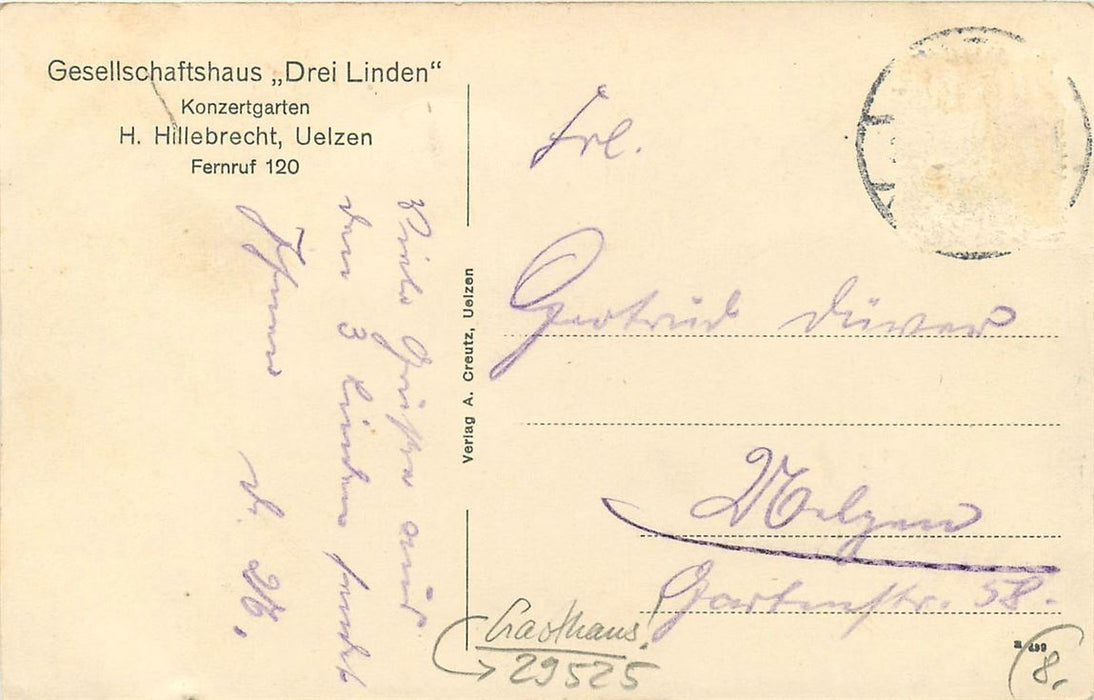 Gesellschaftshaus „Drei Linden“
Konzertgarten
H. Hillebrecht, Uelzen
Fernruf 120
Viele Grüße aus
den 3 Linden sendet
Ihnen
Verlag A. Creutz, Uelzen
Frl.
Gertrud Düver
Uelzen
Gartenstr. 58.
Gasthaus!
29525
8.